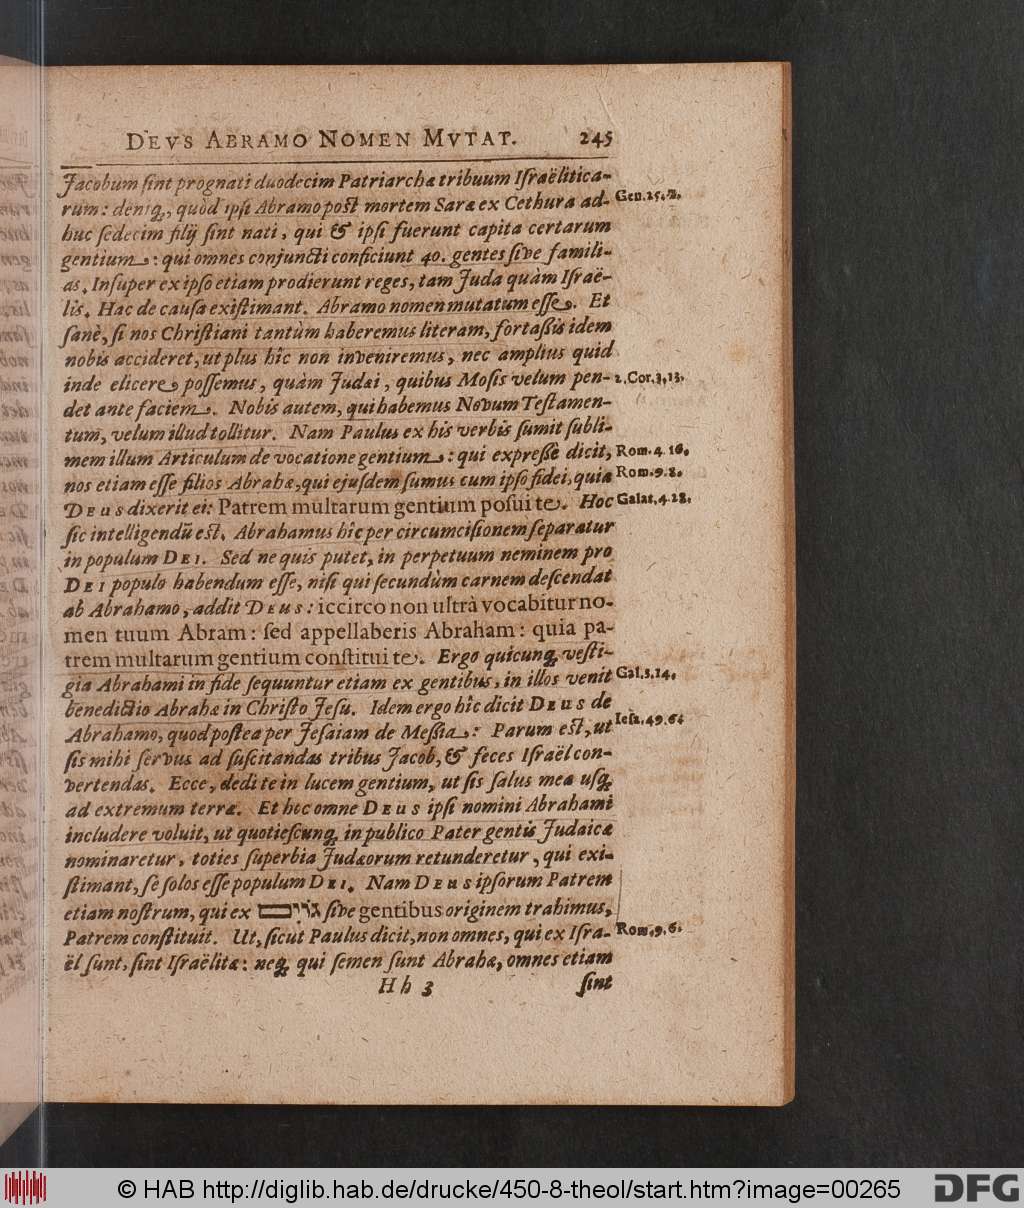 DEVS ABRAMO NOMEN MVTAT. 245
Jacobum ſint prognati duodecim Patriarchæ tribuum Iſraëlitica-
rum: deniq;, quòd ipſi Abramo poſt mortem Saræ ex Cethura ad- Gen.25.v.2.
huc ſedecim filij ſint nati, qui & ipſi fuerunt capita certarum
gentium: qui omnes conjuncti conficiunt 40. gentes ſive famili-
as. Inſuper ex ipſo etiam prodierunt reges, tam Juda quàm Iſraë-
lis. Hac de cauſa exiſtimant. Abramo nomen mutatum eſſe. Et
ſanè, ſi nos Chriſtiani tantùm haberemus literam, fortaßis idem
nobis accideret, ut plus hîc non inveniremus, nec amplius quid
inde elicere poſſemus, quàm Judæi, quibus Moſis velum pen- 2.Cor.3,13.
det ante faciem. Nobis autem, qui habemus Novum Teſtamen-
tum, velum illud tollitur. Nam Paulus ex his verbis ſumit ſubli-
mem illum Articulum de vocatione gentium: qui expreßè dicit, Rom. 4. 16.
nos etiam eſſe filios Abrahæ, qui ejuſdem ſumus cum ipſo fidei, quia Rom. 9. 8.
DEUS dixerit ei: Patrem multarum gentium poſui te. Hoc Galat. 4. 28.
ſic intelligendũ eſt. Abrahamus hîc per circumciſionem ſeparatur
in populum DEI. Sed ne quis putet, in perpetuum neminem pro
DEI populo habendum eſſe, niſi qui ſecundùm carnem deſcendat
ab Abrahamo, addit DEUS: iccirco non ultrà vocabitur no-
men tuum Abram: ſed appellaberis Abraham: quia pa-
trem multarum gentium conſtitui te. Ergo quicunq; veſti-
gia Abrahami in fide ſequuntur etiam ex gentibus, in illos venit Gal. 3. 14.
benedictio Abrahæ in Chriſto Jeſu. Idem ergo hîc dicit DEUS de
Abrahamo, quod poſtea per Jeſaiam de Meſſia: Parum eſt, ut Ieſa. 49. 6.
ſis mihi ſervus ad ſuſcitandas tribus Jacob, & feces Iſraël con-
vertendas. Ecce, dedi te in lucem gentium, ut ſis ſalus mea uſq;
ad extremum terræ. Et hoc omne DEUS ipſi nomini Abrahami
includere voluit, ut quotieſcunq; in publico Pater gentis Judaicæ
nominaretur, toties ſuperbia Judæorum retunderetur, qui exi-
ſtimant, ſe ſolos eſſe populum DEI. Nam DEUS ipſorum Patrem
etiam noſtrum, qui ex גוֹיִם ſive gentibus originem trahimus,
Patrem conſtituit. Ut, ſicut Paulus dicit, non omnes, qui ex Iſra- Rom. 9. 6.
ël ſunt, ſint Iſraëlitæ: neq; qui ſemen ſunt Abrahæ, omnes etiam
Hh 3 ſint
© HAB http://diglib.hab.de/drucke/450-8-theol/start.htm?image=00265 DFG